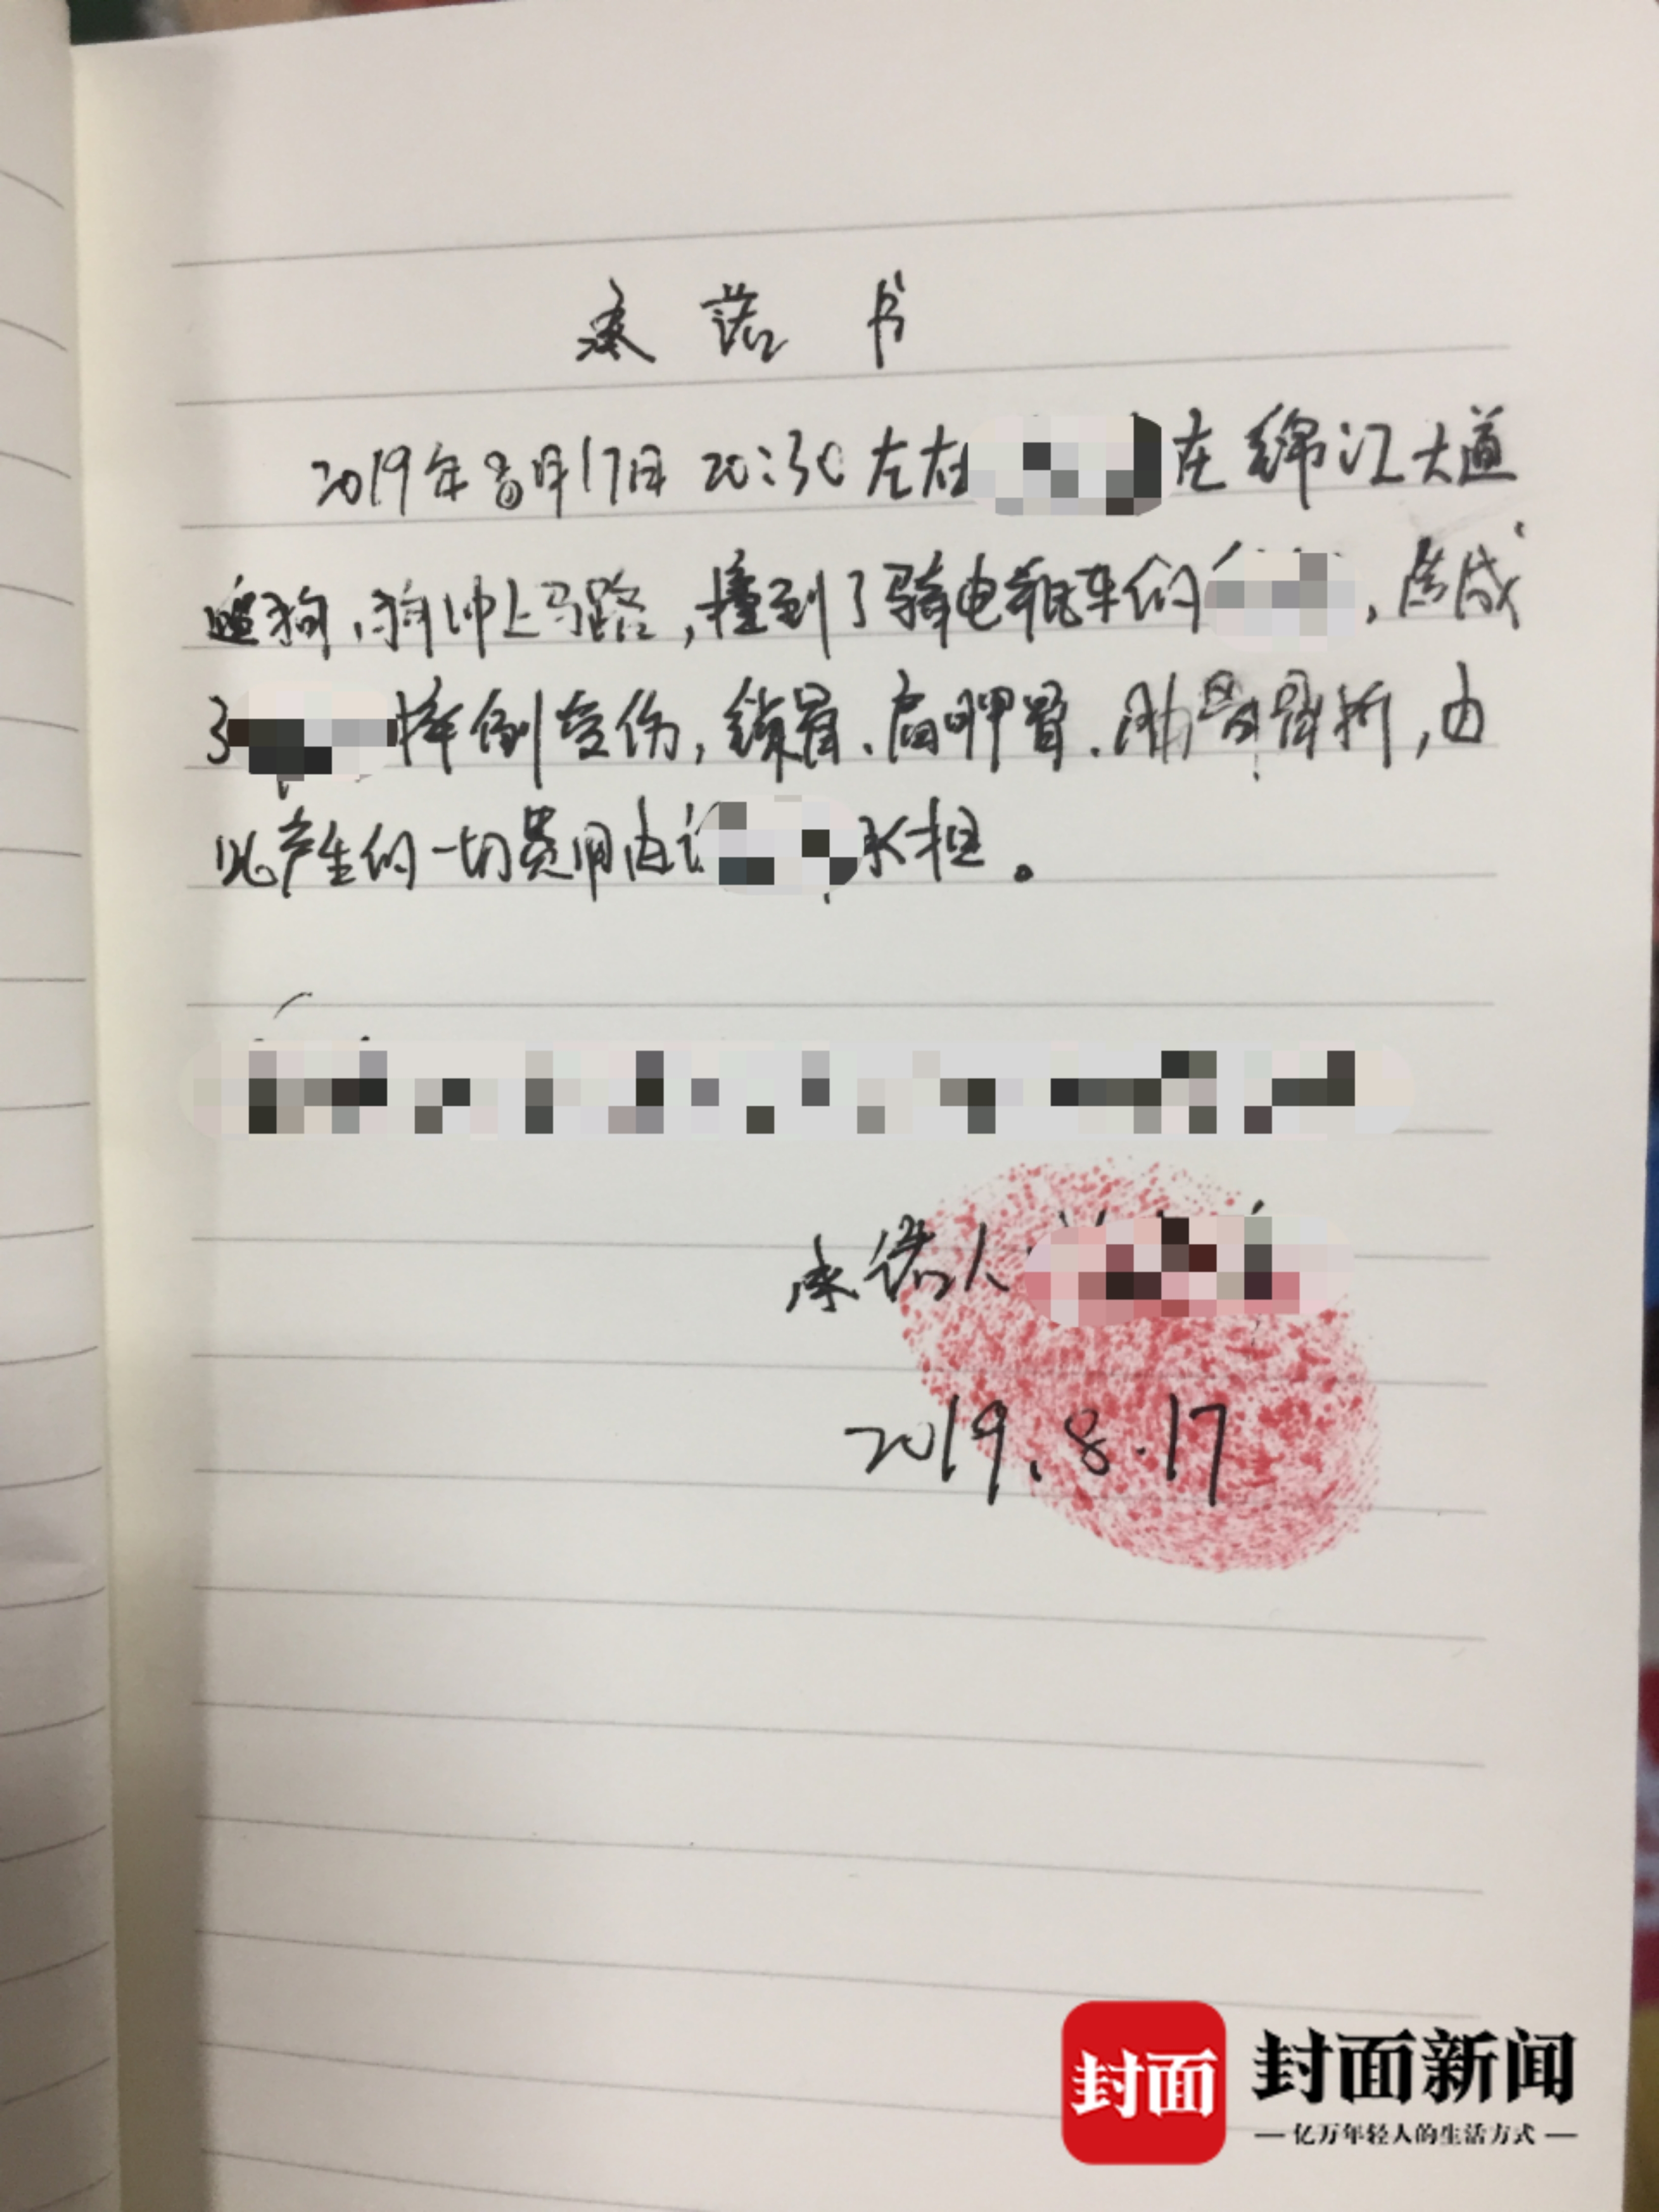 承诺书
2019年8月17日 20:30左右 在绵江大道
遛狗,狗冲上马路,撞到了骑电瓶车的 ,造成
了 摔倒受伤,锁骨、肩胛骨、肋骨骨折,由
此产生的一切费用由 承担。
承诺人
2019.8.17
封面
封面新闻
亿万年轻人的生活方式